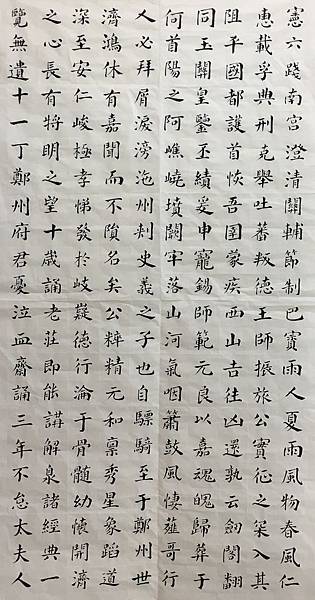 憲六踐南宮澄清關輔節制巴賨雨人夏雨風物春風仁
惠載孚典刑克舉吐蕃叛德王師振旅公實征之策入其
阻平國都護首恢吾圉蒙疾西山吉往凶還孰云劍閣翻
同玉關皇鑒丕績爰申寵錫師範元良以嘉魂魄歸葬于
何首陽之阿嶕嶢墳闕牢落山河氣咽簫鼓風悽薤哥行
人必拜屑淚滂沲州刺史義之子也自驃騎至于鄭州世
濟鴻休有嘉聞而不隕名矣公粹精元和稟秀星象蹈道
深至安仁峻極孝悌發於岐嶷德行淪于骨髓幼懷開濟
之心長有將明之望十歲誦老莊即能講解泉諸經典一
覽無遺十一丁鄭州府君憂泣血齋誦三年不怠太夫人